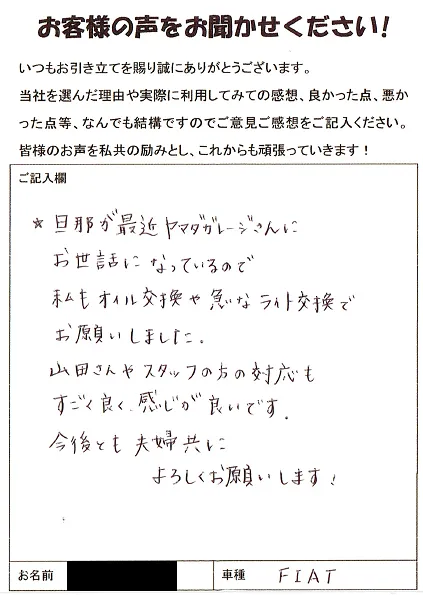 お客様の声をお聞かせください！
いつもお引き立てを賜り誠にありがとうございます。
当社を選んだ理由や実際に利用してみての感想、良かった点、悪か
った点等、なんでも結構ですのでご意見ご感想をご記入ください。
皆様のお声を私共の励みとし、これからも頑張っていきます！
ご記入欄
☆旦那が最近ヤマダガレージさんに
お世話になっているので
私もオイル交換や急なライト交換で
お願いしました。
山田さんやスタッフの方の対応も
すごく良く、感じが良いです。
今後とも夫婦共に
よろしくお願いします！
お名前
車種 FIAT